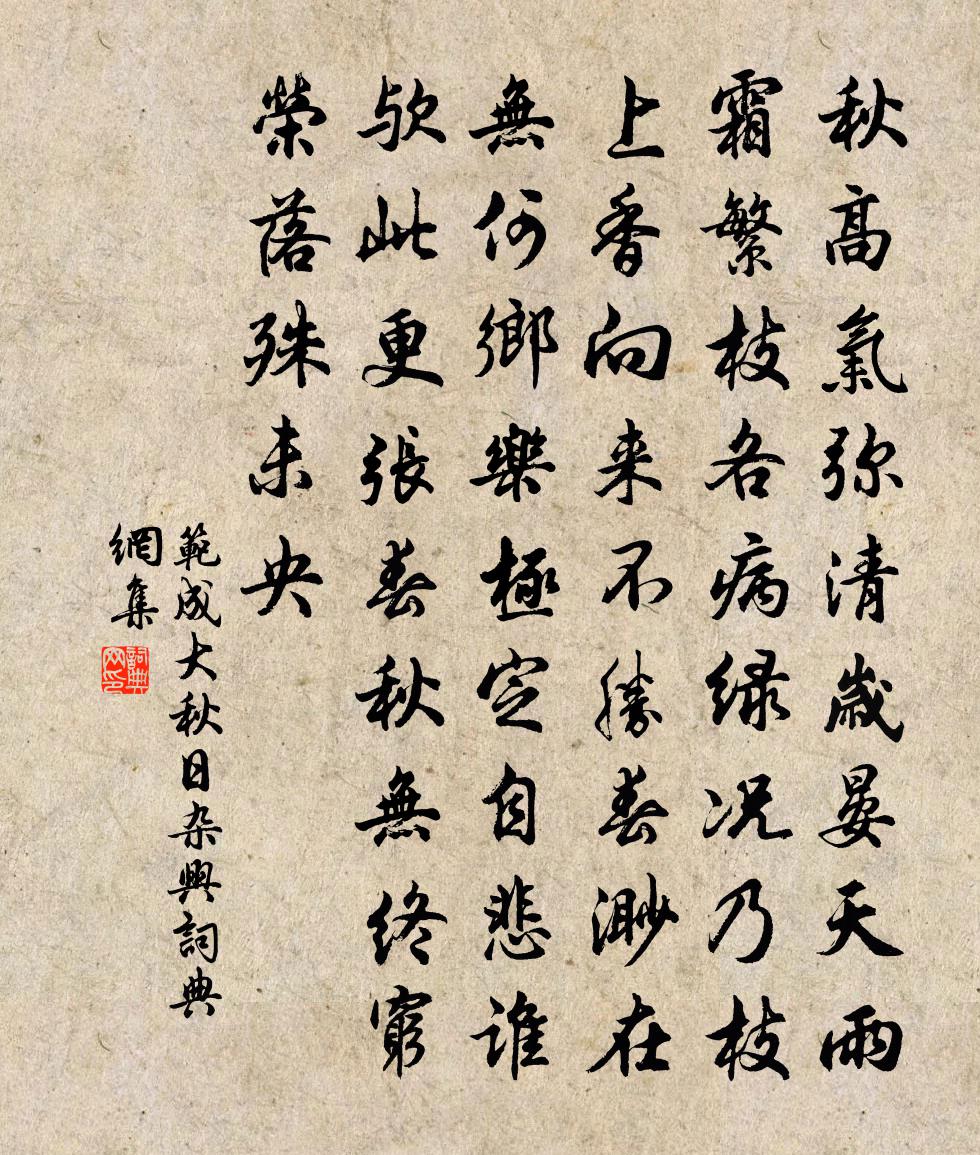 秋高氣弥清歲晏天雨
霜繁枝各病绿况乃枝
上香向来不勝春渺在
無何鄉樂極定自悲誰
欤此更張春秋無終窮
榮落殊未央
範成大秋日杂興詞典
網集
詞典网印